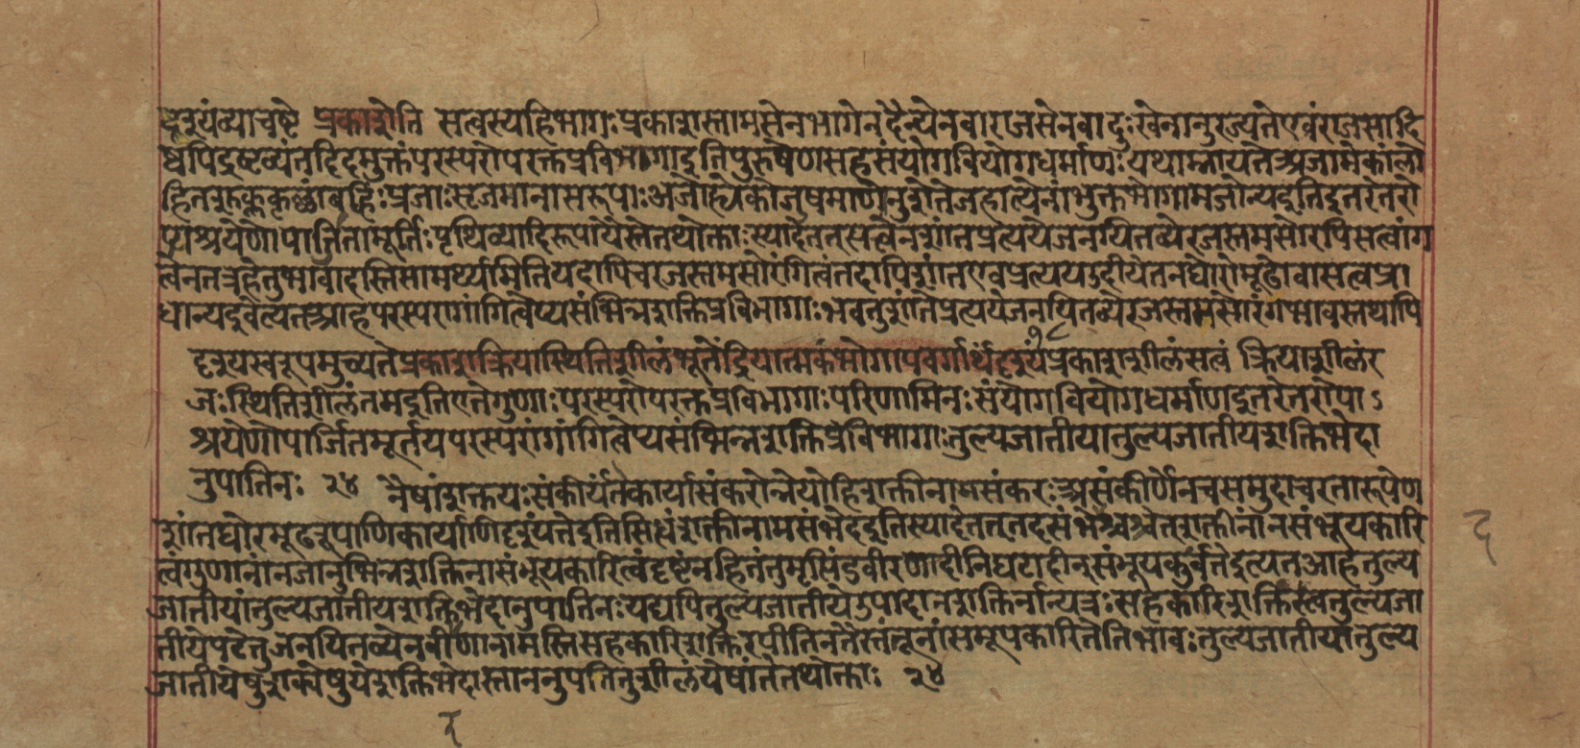 दृश्यंव्याचष्टे प्रकाशेति सत्वस्यहिभागः प्रकाशस्तामसेनभागेनदैन्येनवाराजसेनवादुःखेनानुरज्यतेएवंराजसादि
ष्वपिद्रष्टव्यंतदिदमुक्तंपरस्परोपरक्तप्रविभागाइतिपुरुषेणसहसंयोगवियोगधर्माणः यथाम्नायतेअजामेकांलो
हितशुक्लकृष्णांबह्हीः प्रजाः सृजमानासरूपाः अजोह्येकोजुषमाणोनुशेतेजहात्येनांभुक्तभोगामजोन्यइतिइतरेतरो
पाश्रयेणोपार्तितामूर्तिः पृथिव्यादिरूपायैस्तेतथोक्ताः स्यादेतत्सत्वेनशांतप्रत्ययेजनयितव्येरजस्तमसोरपिसत्वांग
त्वेनतत्रहेतुभावादस्तिसामर्थ्यमितियदापिचरजस्तमसोरंगित्वंतदापिशांतएवप्रत्ययउदीयेतनघोरोमूढोवासत्वप्रा
धान्यइवेत्यतआहपरस्परांगांगित्वेप्यसंभिन्नशक्तिप्रविभागाः भवतुशांतेप्रत्ययेजनयितव्येरजस्तमसोरंगभावस्तथापि
दृश्यस्वरूपमुच्यतेप्रकाशक्रियास्थितिशीलंभूतेंद्रियात्मकंभोगापवर्गार्थंदृश्यं १८ प्रकाशशीलंसत्वं क्रियाशीलंर
जः स्थितिशीलंतमइतिएतेगुणाः परस्परोपरक्तप्रविभागाः परिणामिनः संयोगवियोगधर्माणइतरेतरोपाऽ
श्रयेणोपार्जितमूर्तयपरस्परांगांगित्वेप्यसंभिन्नशक्तिप्रविभागाः तुल्यजातीयातुल्यजातीयशक्तिभेदा
नुपातिनः २४ नैषांशक्तयः संकीर्यंतेकार्यासंकरोन्नेयोहिशक्तीनामसंकरः असंकीर्णेनचसमुदाचरतारूपेण
शांतघोरमूढरूपाणिकार्याणिदृश्यंतेइतिसिद्धंशक्तीनामसंभेदइतिस्यादेतत्तदसंभेदश्चेत्शक्तीनांनसंभूयकारि
त्वंगुणानांनजातुभिन्नशक्तिनासंभूयकारित्वंदृष्टंनहितंतुमृत्पिंडवीरणादीनिघटादीन्संभूयकुर्वतेइत्यतआहतुल्य
जातीयातुल्यजातीयशक्तिभेदानुपातिनः यद्यपितुल्यजातीयेउपादानशक्तिर्नान्यत्रः सहकारिशक्तिस्त्वतुल्यजा
तीयेपटेतुजनयितव्येनवीरणानामस्तिसहकारिशक्तिरपीतिनतैस्तंतूनांसंभूयकारितेतिभावः तुल्यजातीयातुल्य
जातीयेषुशक्येषुयेशक्तिभेदास्ताननुपतितुंशीलंयेषांतेतथोक्ताः २४